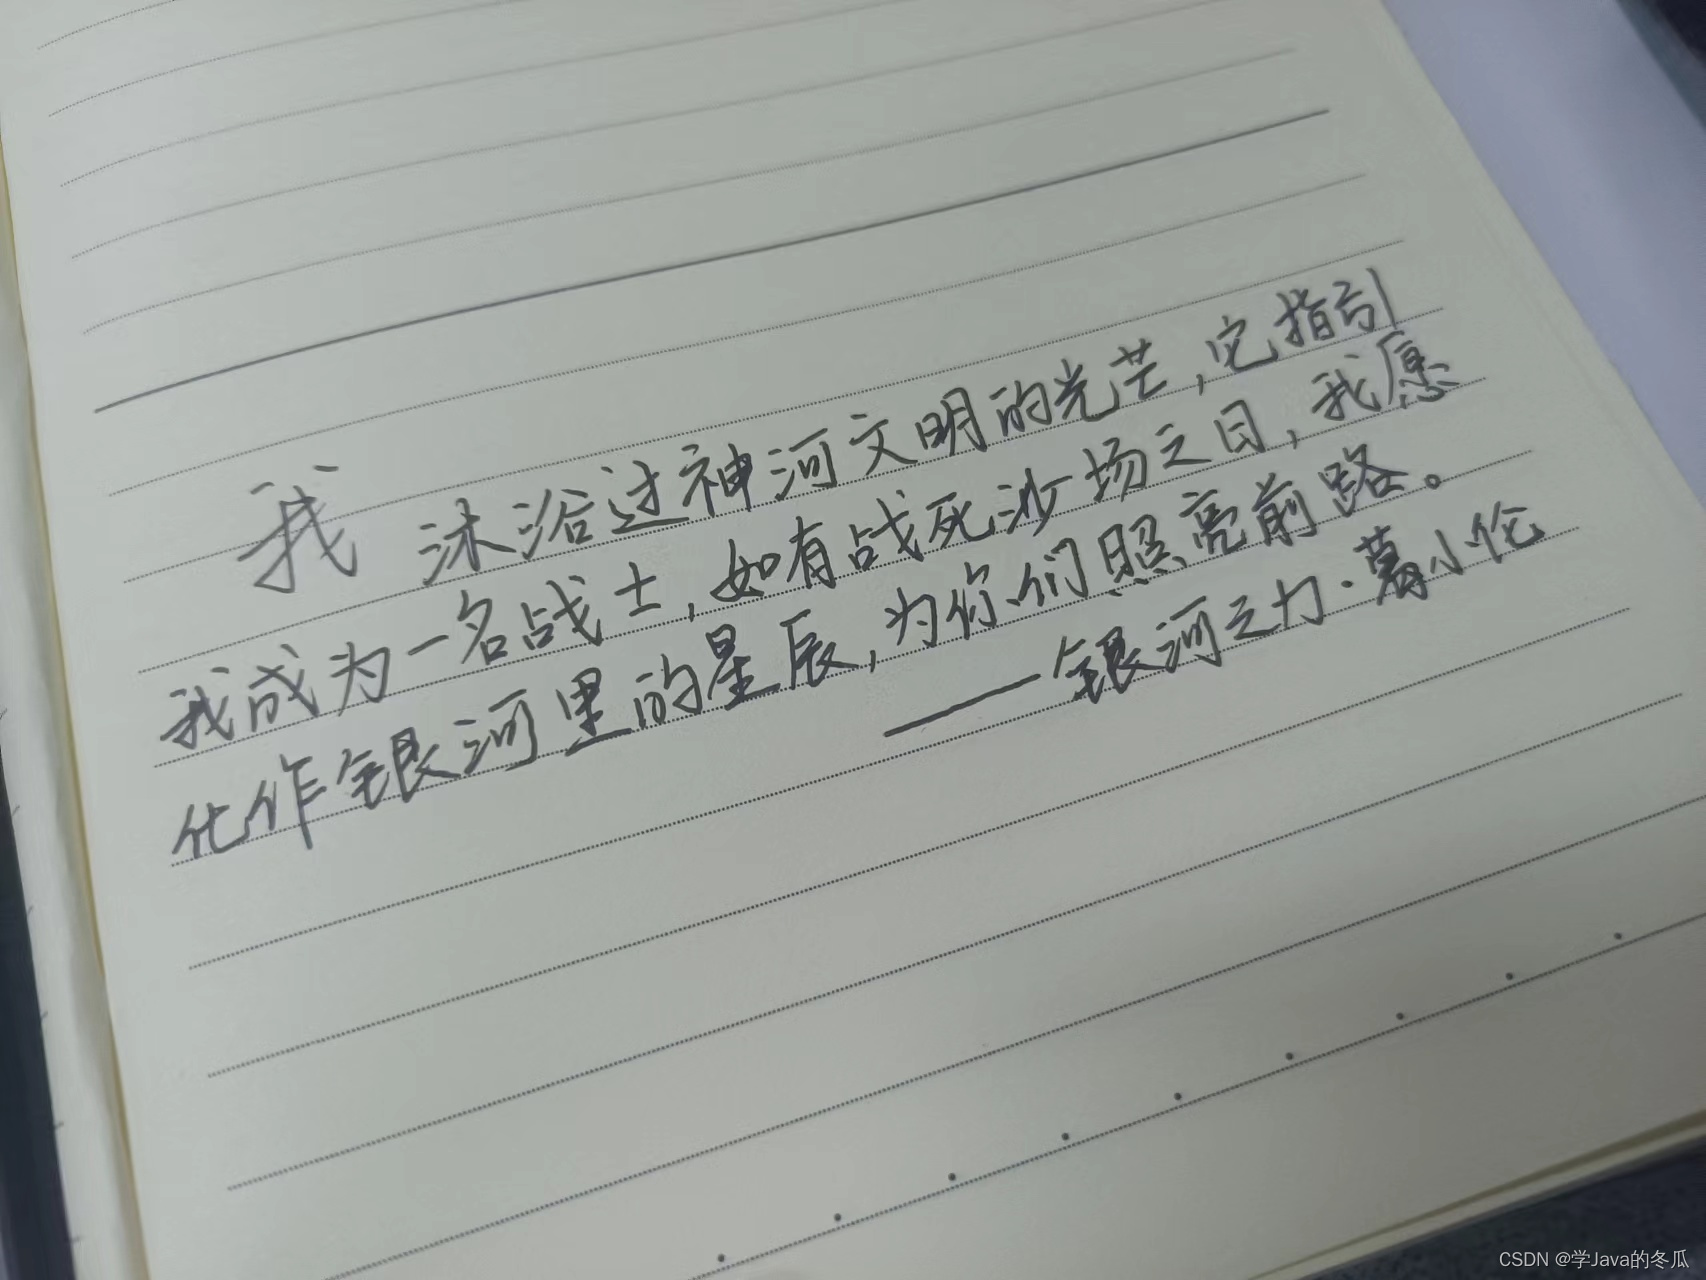 我 沐浴过神河文明的光芒，它指引
我成为一名战士，如有战死沙场之日，我愿
化作银河里的星辰，为你们照亮前路。
——银河之力·葛小伦
CSDN @学Java的冬瓜